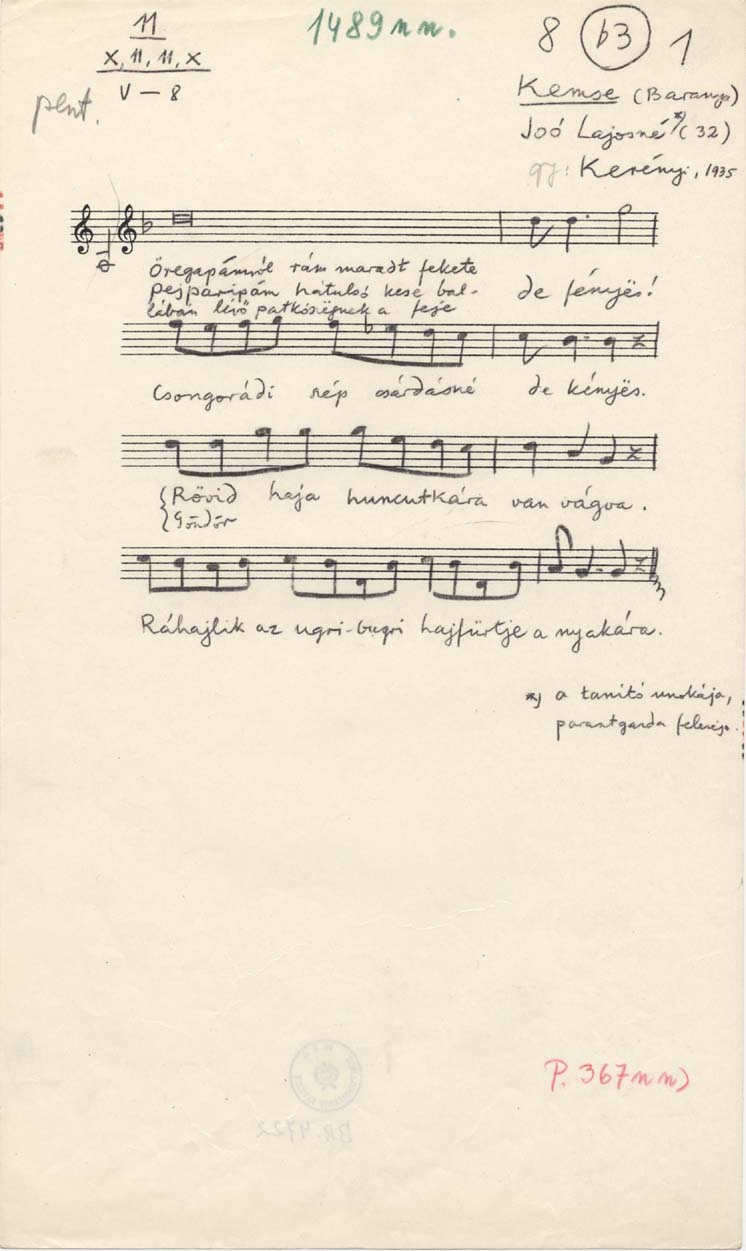 11
x, 11, 11, x
V — 8
pent.
1489nn.
8 (b3) 1
Kemse (Baranya)
Joó Lajosné *) (32)
gy: Kerényi, 1935
Öregapámról rám maradt fekete
pejparipám hátulsó kese bal-
lában lévő patkószögnek a feje
de fényës!
Csongorádi nép csárdásné de kényës.
Rövid haja huncutkára van vágva.
Göndör
Ráhajlik az ugri-bugri hajfürtje a nyakára.
*) a tanító unokája,
P. 367nn)
BR. 4722